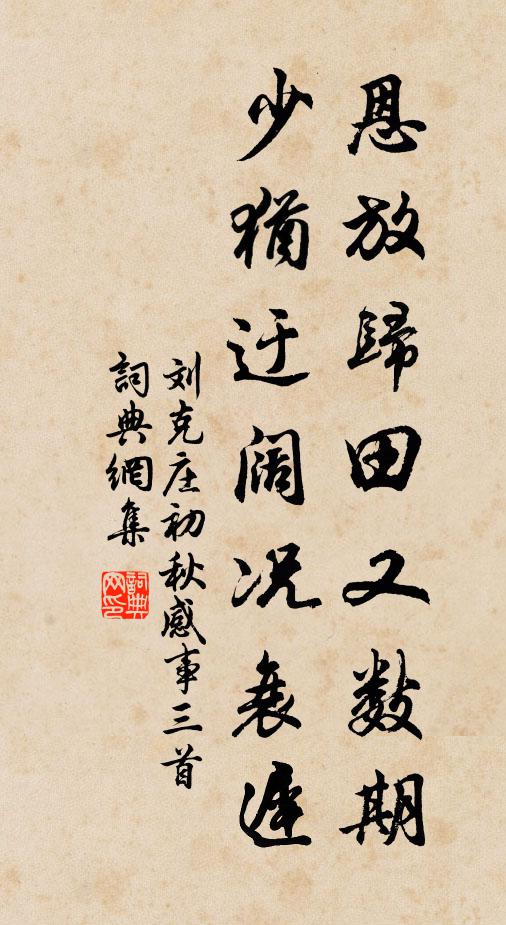 恩放歸田又數期
少猶迂阔况衰遲
刘克庄初秋感事三首
詞典網集
詞典
网印